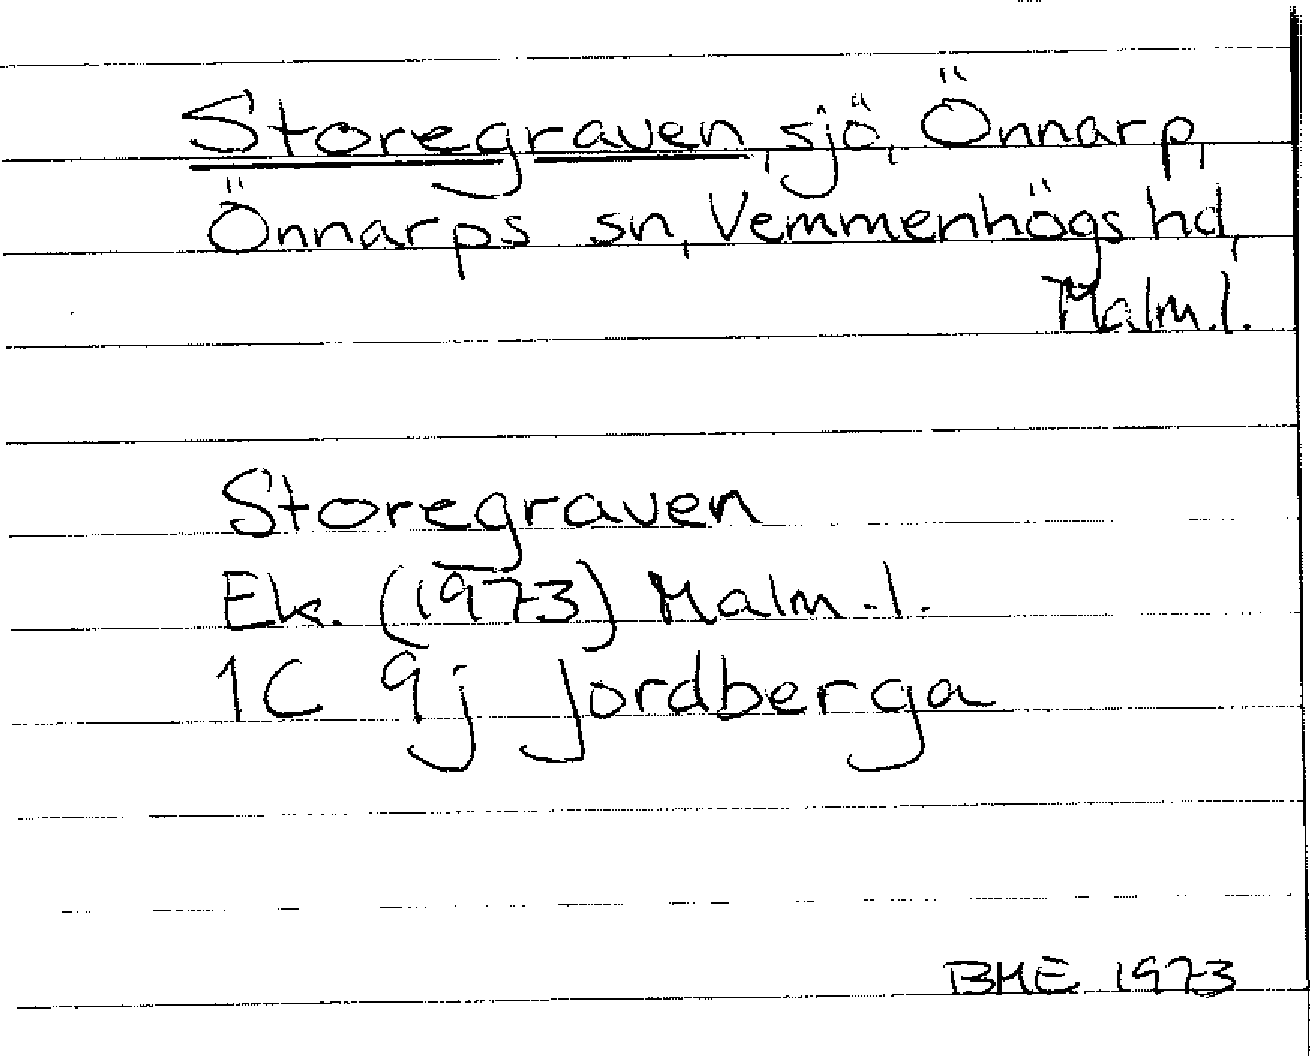 Storegraven, sjö, Önnarp,
Önnarps sn, Vemmenhögs hd,
Malm.l.
Storegraven
Ek. (1973) Malm.l.
1C 9j Jordberga
BME 1973